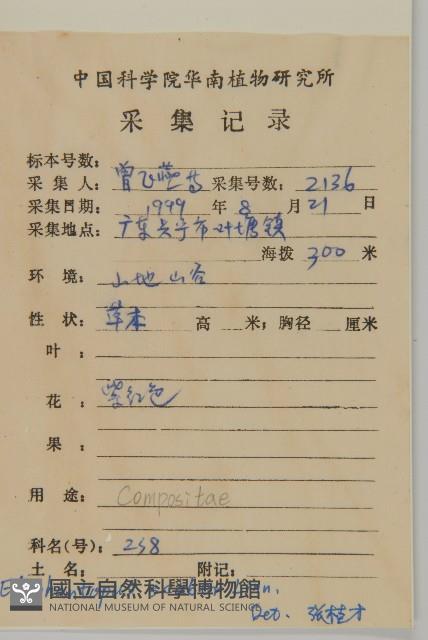 中国科学院华南植物研究所
采集记录
标本号数：
采集人：曾飞燕等 采集号数：2136
采集日期：1999年8月21日
采集地点：广东兴宁市叶塘镇
海拨 300 米
环境：山地山谷
性状：草本 高 米；胸径 厘米
叶：
花：紫红色
果：
用途：Compositae
科名(号)：238
土名： 附记：
國立自然科學博物館
NATIONAL MUSEUM OF NATURAL SCIENCE
Det. 张桂才